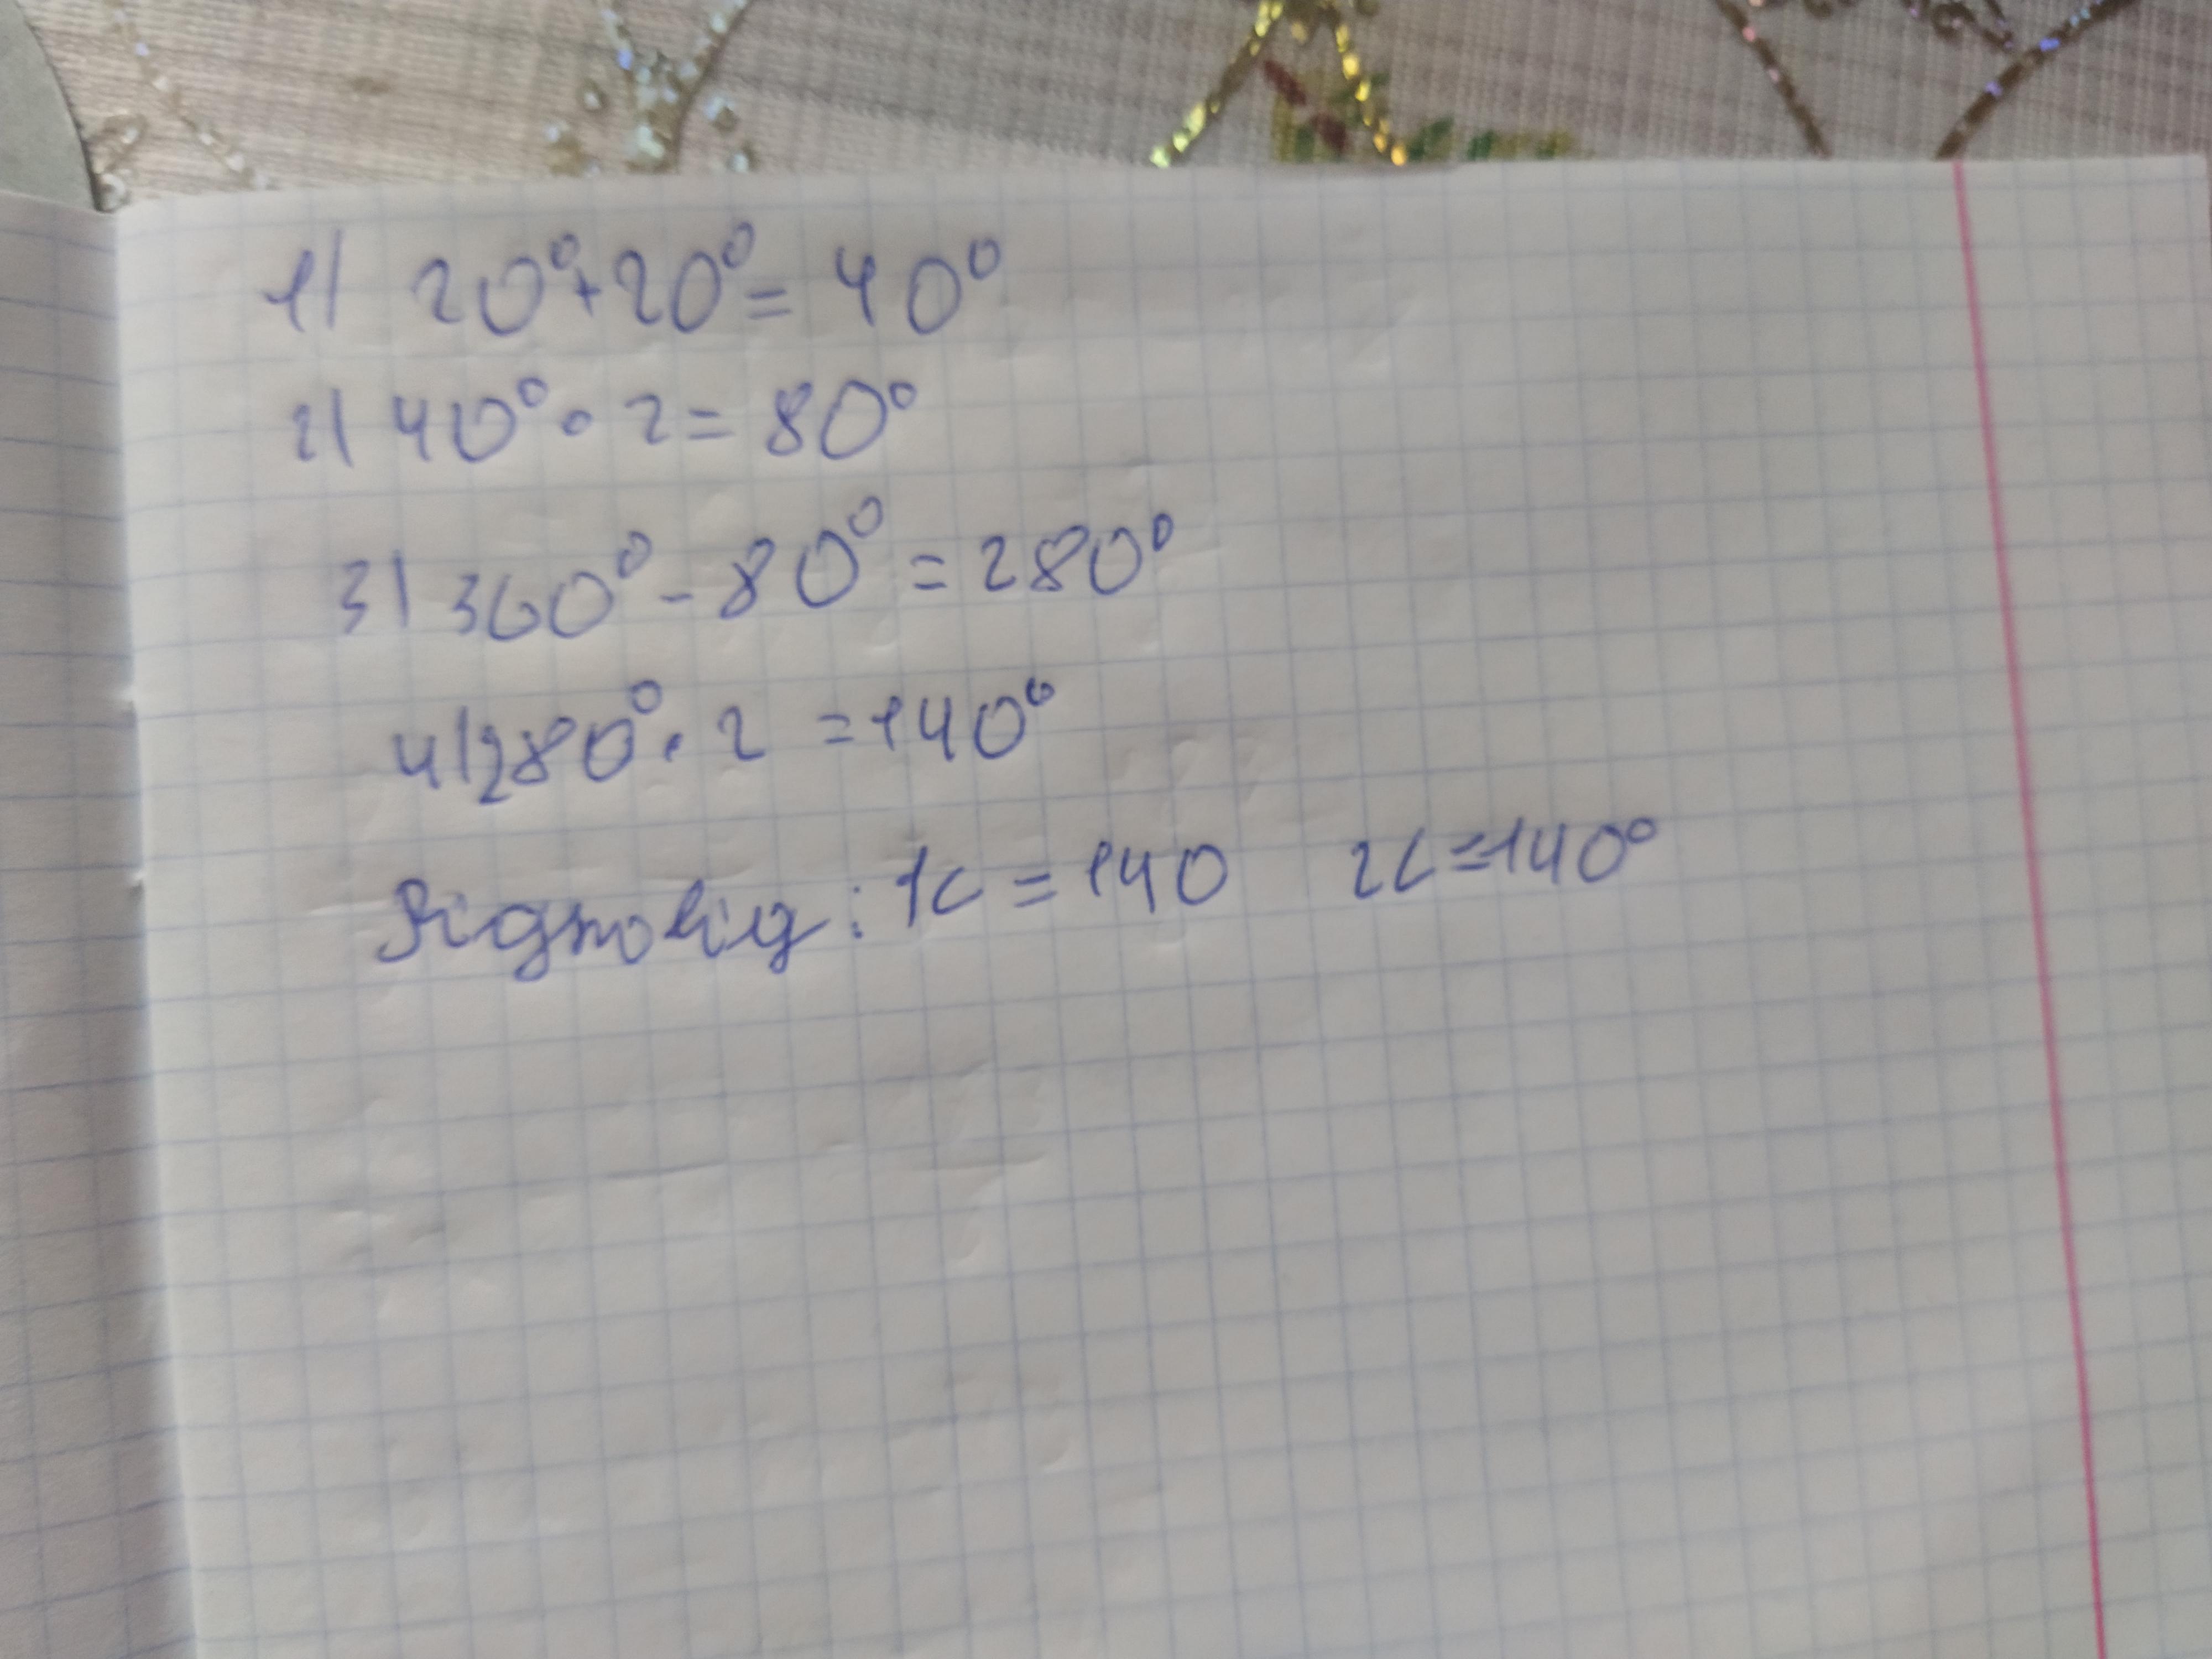 1) 20°+20°= 40°
2) 40° · 2 = 80°
3) 360° - 80° = 280°
4) 280° · 2 = 140°
Відповідь: 1< = 140 2< = 140°